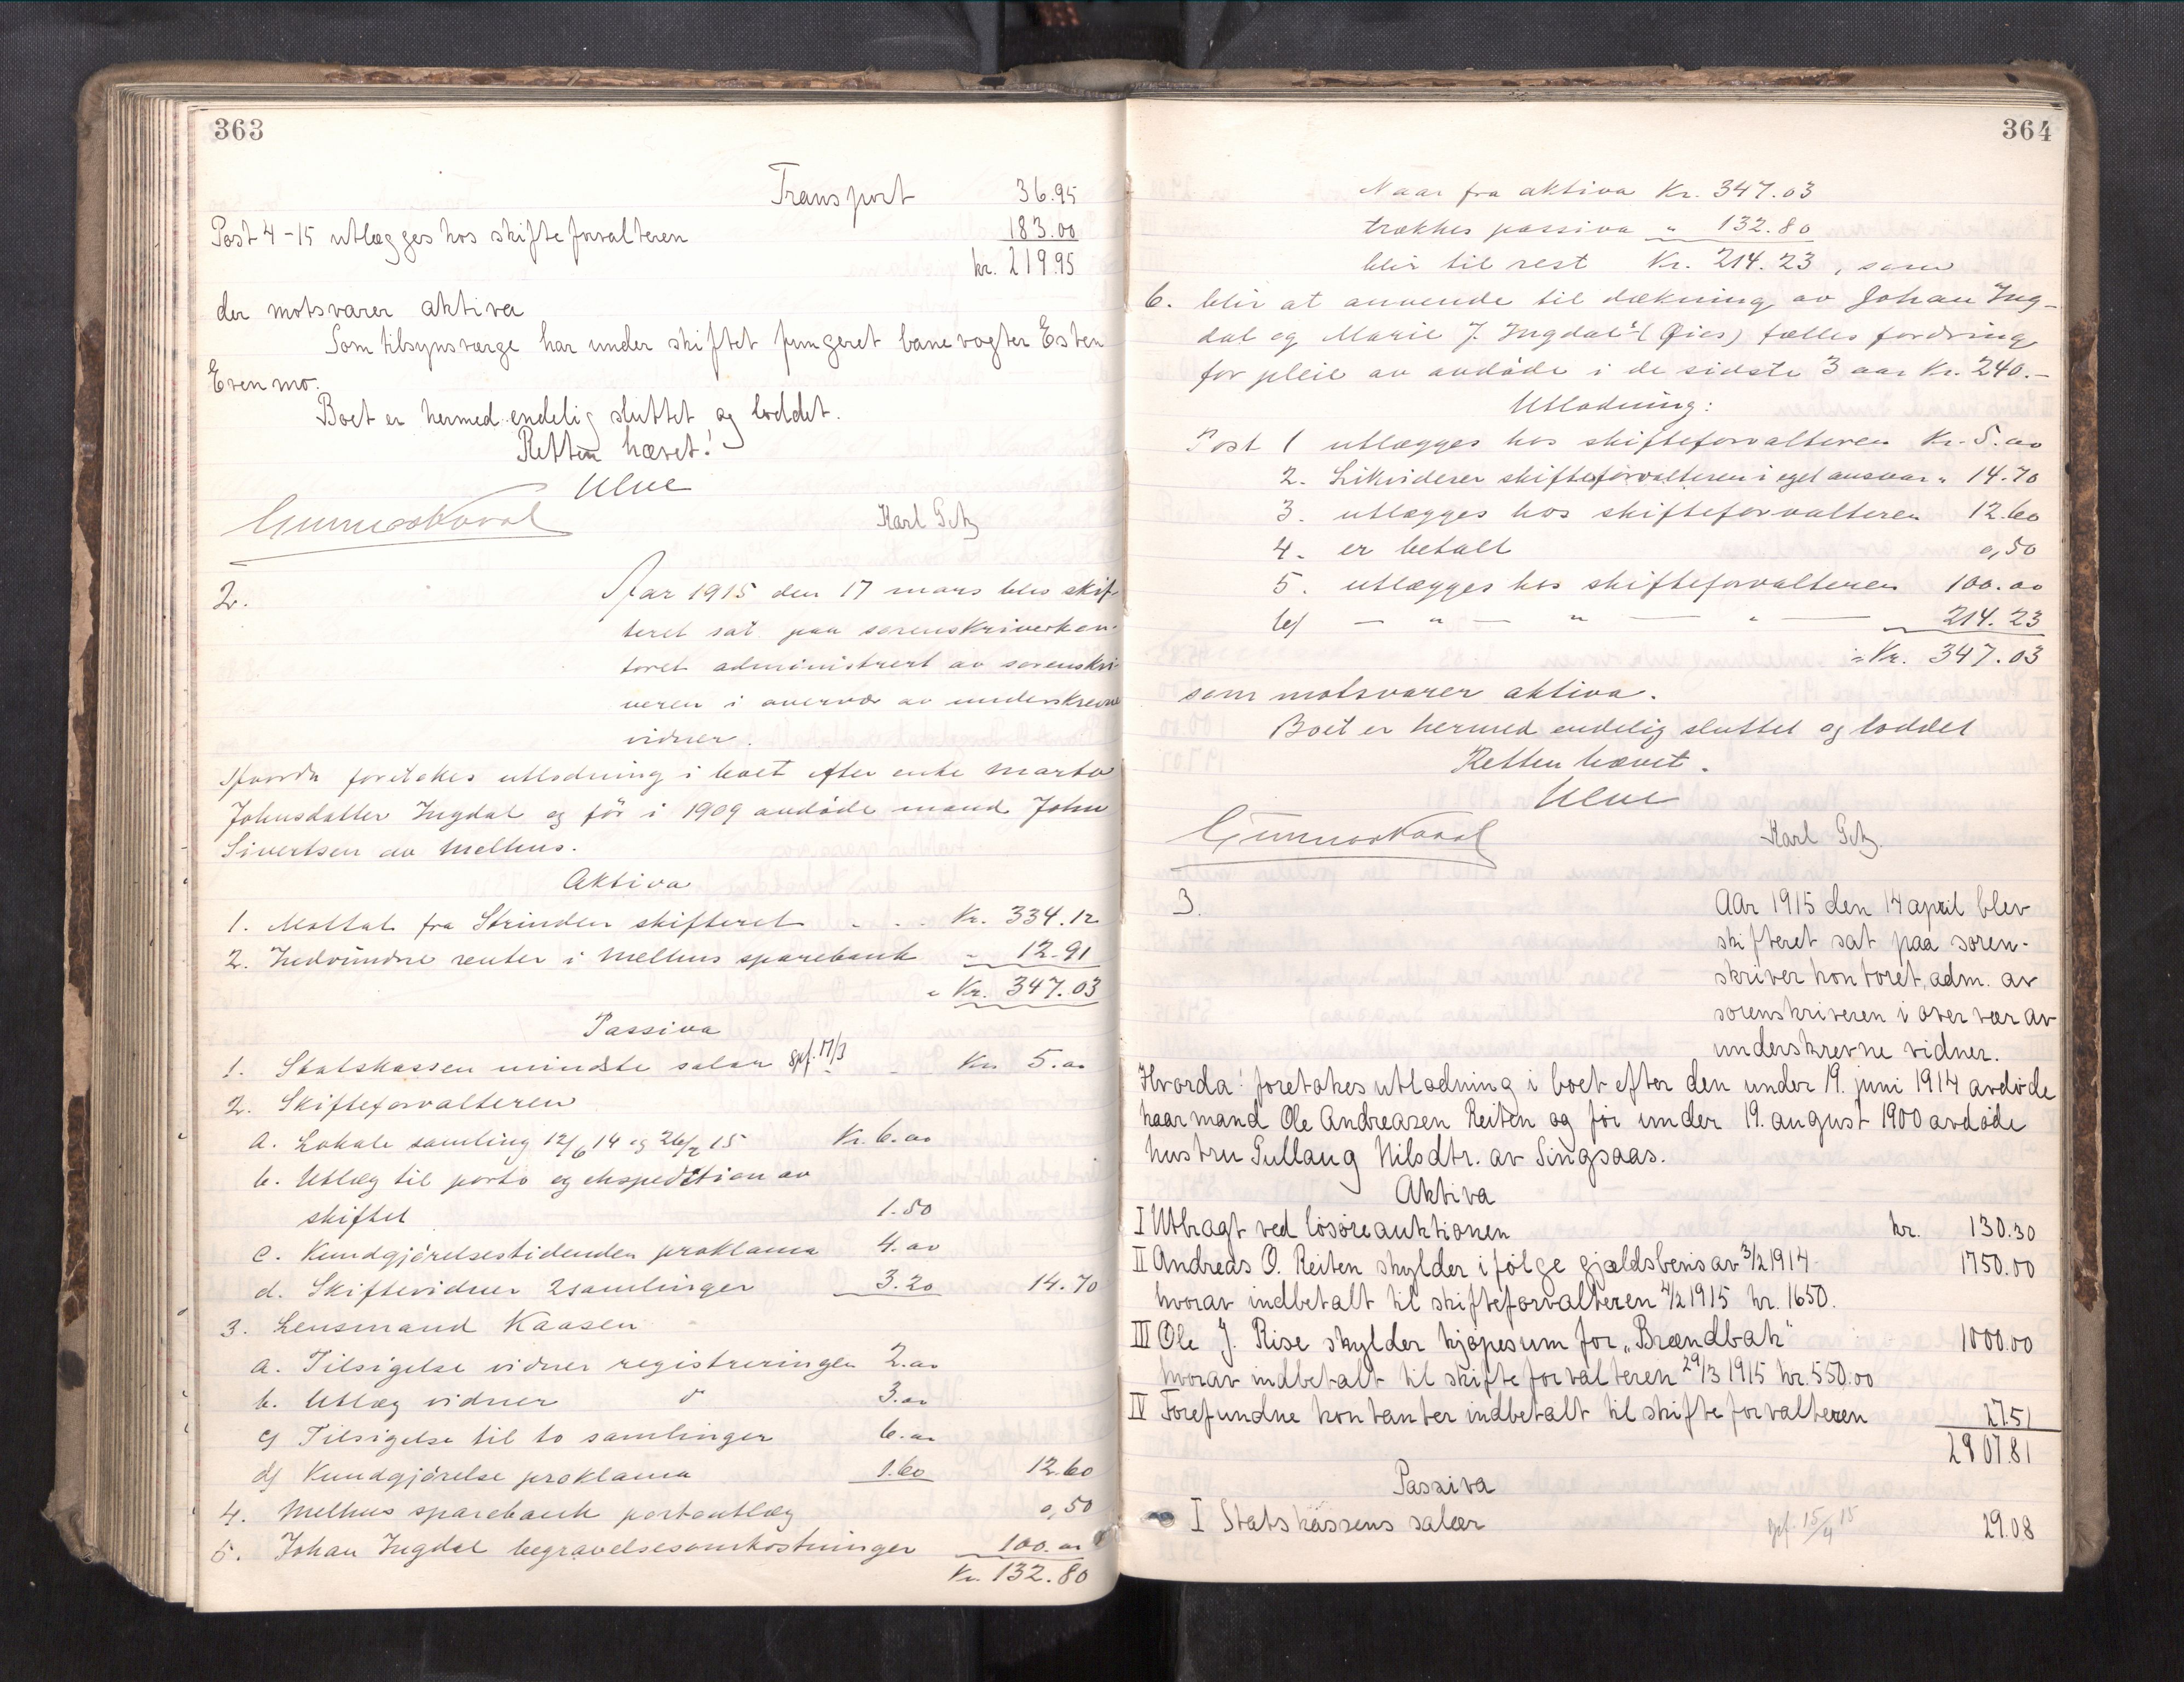 363
Transport 36.95
Post 4-15 utlægges hos skifteforvalteren 183.00
kr. 219.95
der motsvarer aktiva
Som tilsynsværge har under skiftet fungeret banevogter Esten
Evenmo.
Boet er hermed endelig sluttet og loddet.
Retten hævet!
Ulve
Karl Getz
2. Aar 1915 den 17 mars blev skif-
teret sat paa sorenskriverkon-
toret administrert av sorenskri-
veren i overvær av underskrevne
vidner.
Hvorda foretokes utlodning i boet efter enke Marta
Johnsdatter Ingdal og før i 1909 avdøde mand John
Sivertsen av Melhus.
Aktiva
1. Mottat fra Strinden skifteret - - - Kr. 334.12
2. Indvundne renter i Melhus sparebank - 12.91
Kr. 347.03
Passiva
1. Statskassen mindste salær gpf. 17/3 - Kr. 5.00
2. Skifteforvalteren
a. Lokale samling 12/6 14 og 26/2 15 Kr. 6.00
b. Utlæg til porto og ekspedition av
skiftet 1.50
c. Kundgjørelsestidenden proklama 4.00
d. Skiftevidner 2 samlinger 3.20 14.70
3. Lensmand Kaasen
a. Tilsigelse vidner registreringen 2.00
b. Utlæg vidner d° 3.00
c) Tilsigelse til to samlinger 6.00
d) Kundgjørelse proklama 1.60 12.60
4. Melhus sparebank portoutlæg 0,50
5. Johan Ingdal begravelsesomkostninger 100.00
Kr. 132.80
364
Naar fra aktiva Kr. 347.03
trækkes passiva " 132.80
blir til rest Kr. 214.23, som
6. blir at anvende til dækning av Johan Ing-
dal og Marie J. Ingdal's (Øies) fælles fordring
for pleie av avdøde i de sidste 3 aar Kr. 240.-
Utlodning:
Post 1 utlægges hos skifteforvalteren Kr. 5.00
2. Likviderer skifteforvalteren i eget ansvar " 14.70
3. utlægges hos skifteforvalteren 12.60
4. er betalt 0,50
5. utlægges hos skifteforvalteren 100.00
6) — " — " — " — 214.23
= Kr. 347.03
som motsvarer aktiva.
Boet er hermed endelig sluttet og loddet
Retten hævet.
Ulve
Karl Getz.
3. Aar 1915 den 14 april blev
skifteret sat paa soren-
skriverkontoret, adm. av
sorenskriveren i overvær av
underskrevne vidner.
Hvorda: foretokes utlodning i boet efter den under 19. juni 1914 avdøde
kaarmand Ole Andreasen Reiten og før under 19. august 1900 avdøde
hustru Gullaug Nilsdtr. av Singsaas.
Aktiva
I Utbragt ved løsøreauktionen kr. 130.30
II Andreas O. Reiten skylder ifølge gjældsbevis av 3/2 1914 1750.00
hvorav indbetalt til skifteforvalteren 4/2 1915 kr. 1650.
III Ole J. Rise skylder kjøpesum for "Brændbak" 1000.00
hvorav indbetalt til skifteforvalteren 29/3 1915 kr. 550.00
IV Forefundne kontanter indbetalt til skifteforvalteren 27.51
2907.81
Passiva
I Statskassens salær gpf. 15/4 15 29.08